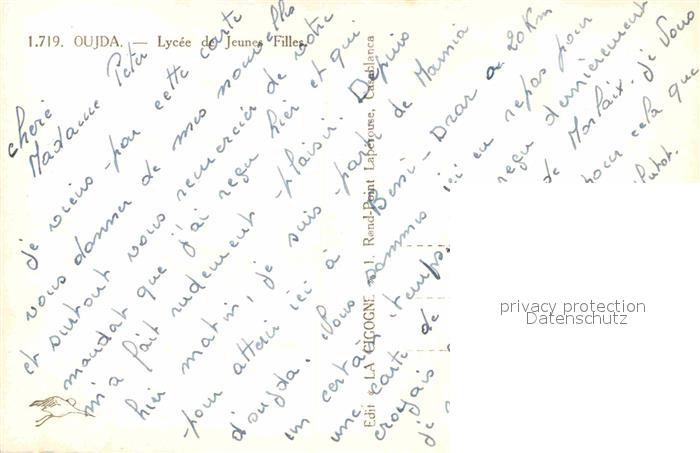 1.719. OUJDA. — Lycée de Jeunes Filles.
Chère
Madame Peter
Je viens par cette carte
vous donner de mes nouvelles
et surtout vous remercier de votre
mandat que j'ai reçu hier et qui
m'a fait rudement plaisir. Depuis
hier matin, je suis parti de Marnia
pour atterir ici à Beni-Drar à 20 Km
d'oujda. Nous sommes ici en repos pour
un certain temps. reçu dernièrement
une carte de de Morlaix. Je Vous
croyais pour cela que
je
Edit. LA CIGOGNE 1, Rond-Point Lapérouse, Casablanca
privacy protection
Datenschutz